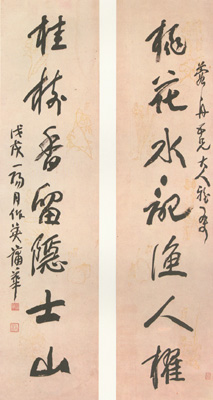 桃花水記漁人櫂
舟兄大人雅
桂樹香留隱士山
戊戌一陽月作英蒲華